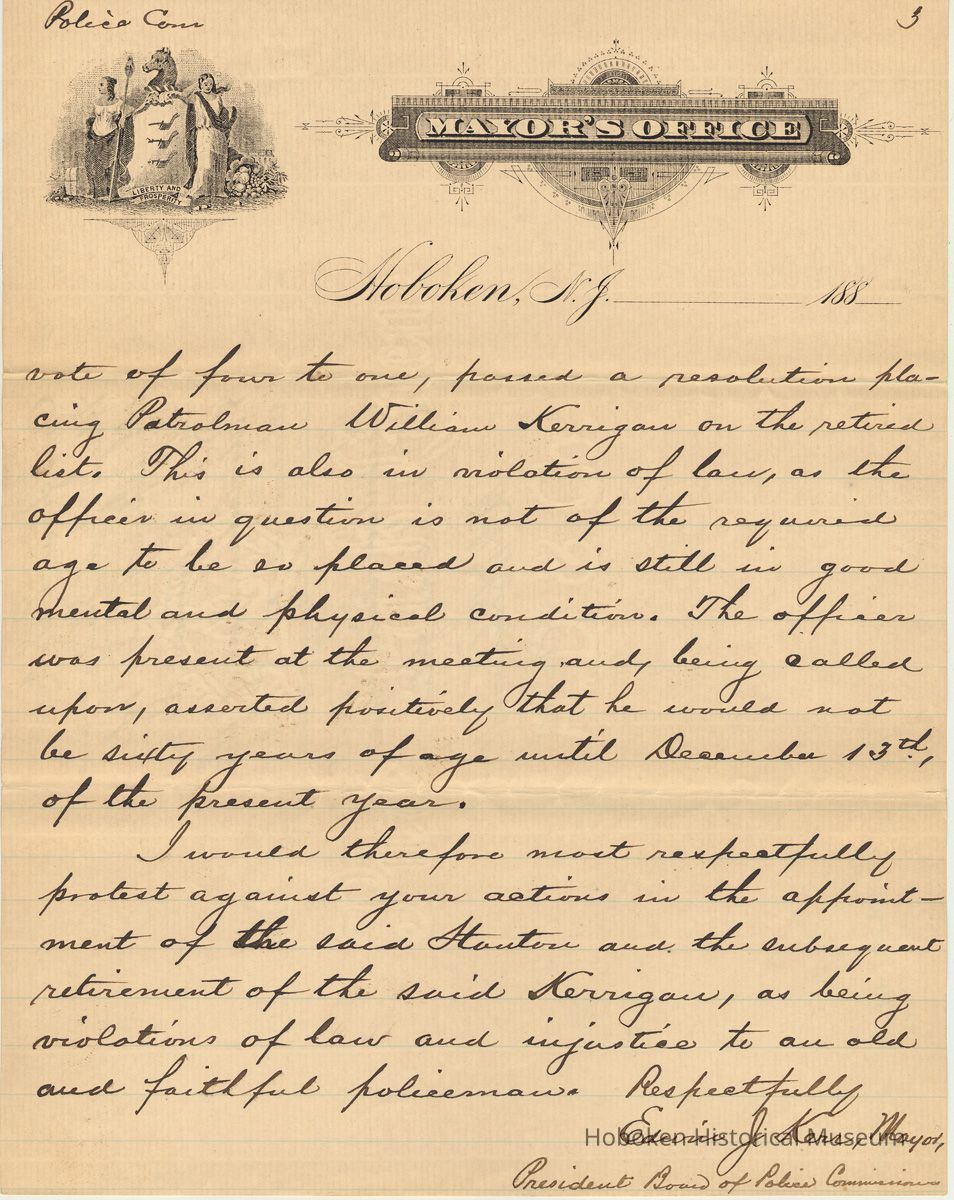 Police Com
3
LIBERTY AND
PROSPERITY
MAYOR'S OFFICE
Hoboken, N.J. 188
vote of four to one, passed a resolution pla-
cing Patrolman William Kerrigan on the retired
list. This is also in violation of law, as the
officer in question is not of the required
age to be so placed and is still in good
mental and physical condition. The officer
was present at the meeting and, being called
upon, asserted positively that he would not
be sixty years of age until December 13th,
of the present year.
I would therefore most respectfully
protest against your actions in the appoint-
ment of the said Stanton and the subsequent
retirement of the said Kerrigan, as being
violations of law and injustice to an old
and faithful policeman. Respectfully
J. Kerr, Mayor,
Hoboken Historical Museum
President Board of Police Commissioners